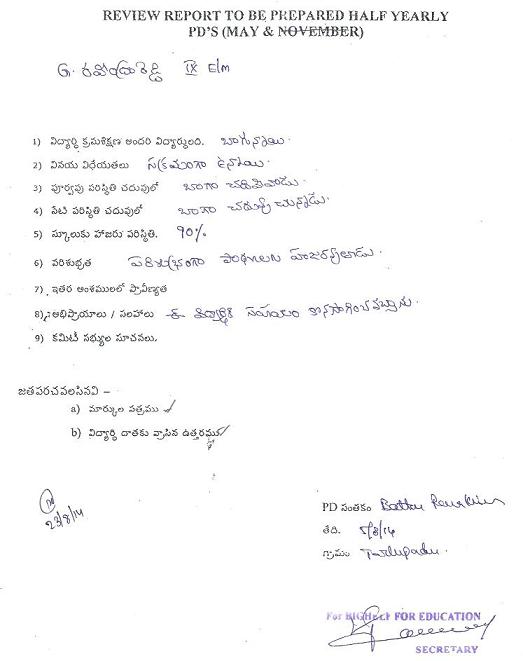 REVIEW REPORT TO BE PREPARED HALF YEARLY
PD'S (MAY & NOVEMBER)
G. రవీంద్రారెడ్డి IX E/m
1) విద్యార్థి క్రమశిక్షణ అందరి విద్యార్థులది. బాగున్నాయి.
2) వినయ విధేయతలు సక్రమంగా ఉన్నాయి.
3) పూర్వపు పరిస్థితి చదువులో బాగా చదివేవాడు.
4) నేటి పరిస్థితి చదువులో బాగా చదువు చున్నాడు.
5) స్కూలుకు హాజరు పరిస్థితి. 90%
6) పరిశుభ్రత పరిశుభ్రంగా హాజరవుతాడు.
7) ఇతర అంశములలో ప్రావీణ్యత
8) అభిప్రాయాలు / సలహాలు ఈ విద్యార్థికి సహాయం కొనసాగించవచ్చును.
9) కమిటీ సభ్యుల సూచనలు.
జతపరచవలసినవి –
a) మార్కుల పత్రము ✓
b) విద్యార్థి దాతకు వ్రాసిన ఉత్తరము ✓
23/8/14
PD సంతకం
తేది. 5/8/14
గ్రామం Turlupadu.
For HIGHeLP FOR EDUCATION
SECRETARY